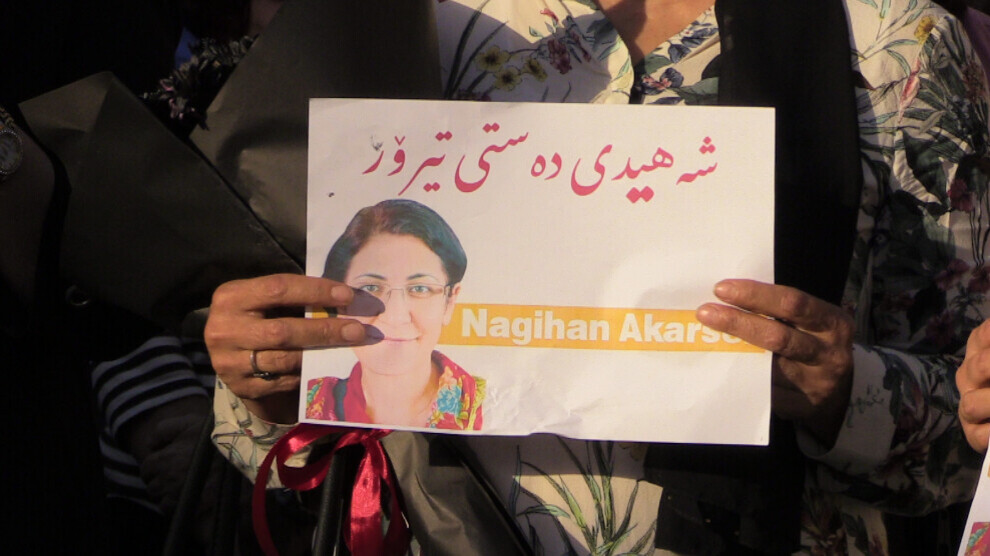 شەهیدی دەستی تیرۆر
Nagihan